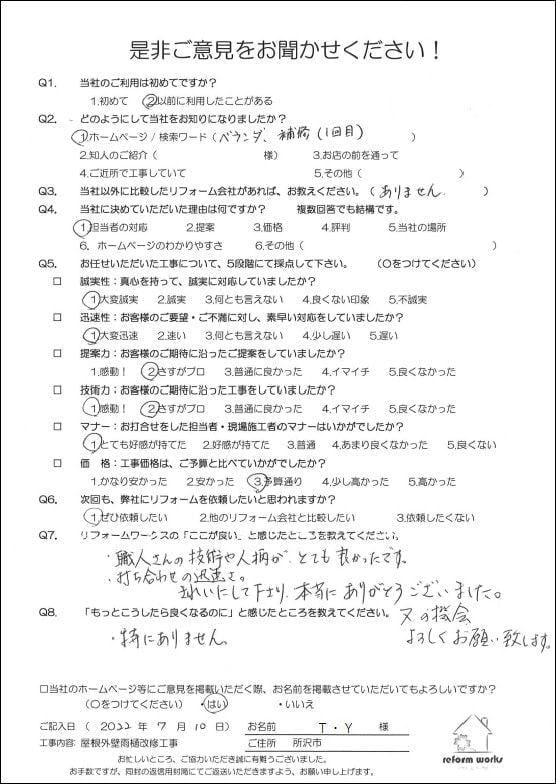 是非ご意見をお聞かせください！
Q1. 当社のご利用は初めてですか？
1.初めて ②以前に利用したことがある
Q2. どのようにして当社をお知りになりましたか？
①ホームページ / 検索ワード（ベランダ、補修（1回目） ）
2.知人のご紹介（ 様） 3.お店の前を通って
4.ご近所で工事していて 5.その他（ ）
Q3. 当社以外に比較したリフォーム会社があれば、お教えください。（ありません ）
Q4. 当社に決めていただいた理由は何ですか？ 複数回答でも結構です。
①担当者の対応 2.提案 3.価格 4.評判 5.当社の場所
6．ホームページのわかりやすさ 6.その他（ ）
Q5. お任せいただいた工事について、5段階にて採点して下さい。 （○をつけてください）
□ 誠実性：真心を持って、誠実に対応していましたか？
①大変誠実 2.誠実 3.何とも言えない 4.良くない印象 5.不誠実
□ 迅速性：お客様のご要望・ご不満に対し、素早い対応をしていましたか？
①大変迅速 2.速い 3.何とも言えない 4.少し遅い 5.遅い
□ 提案力：お客様のご期待に沿ったご提案をしていましたか？
1.感動！ ②さすがプロ 3.普通に良かった 4.イマイチ 5.良くなかった
□ 技術力：お客様のご期待に沿った工事をしていましたか？
①感動！ ②さすがプロ 3.普通に良かった 4.イマイチ 5.良くなかった
□ マナー：お打合せをした担当者・現場施工者のマナーはいかがでしたか？
①とても好感が持てた 2.好感が持てた 3.普通 4.あまり良くなかった 5.良くない
□ 価 格：工事価格は、ご予算と比べていかがでしたか？
1.かなり安かった 2.安かった ③予算通り 4.少し高かった 5.高かった
Q6. 次回も、弊社にリフォームを依頼したいと思われますか？
①ぜひ依頼したい 2.他のリフォーム会社と比較したい 3.依頼したくない
Q7. リフォームワークスの「ここが良い」と感じたところを教えてください。
・職人さんの技術や人柄が、とても良かったです。
・打ち合わせの迅速さ。
きれいにして下さり、本当にありがとうございました。
Q8. 「もっとこうしたら良くなるのに」と感じたところを教えてください。 又の機会
・特にありません。 よろしくお願い致します。
□当社のホームページ等にご意見を掲載いただく際、お名前を掲載させていただいてもよろしいですか？
（○をつけてください） ・はい ・いいえ
ご記入日（ 2022 年 7 月 10 日） お名前 T・Y 様
工事内容：屋根外壁雨樋改修工事 ご住所 所沢市
reform works
お忙しいところ、ご協力いただき誠に有難うございました。
お手数ですが、同封の返信用封筒にてご返送いただきますよう、お願い申し上げます。